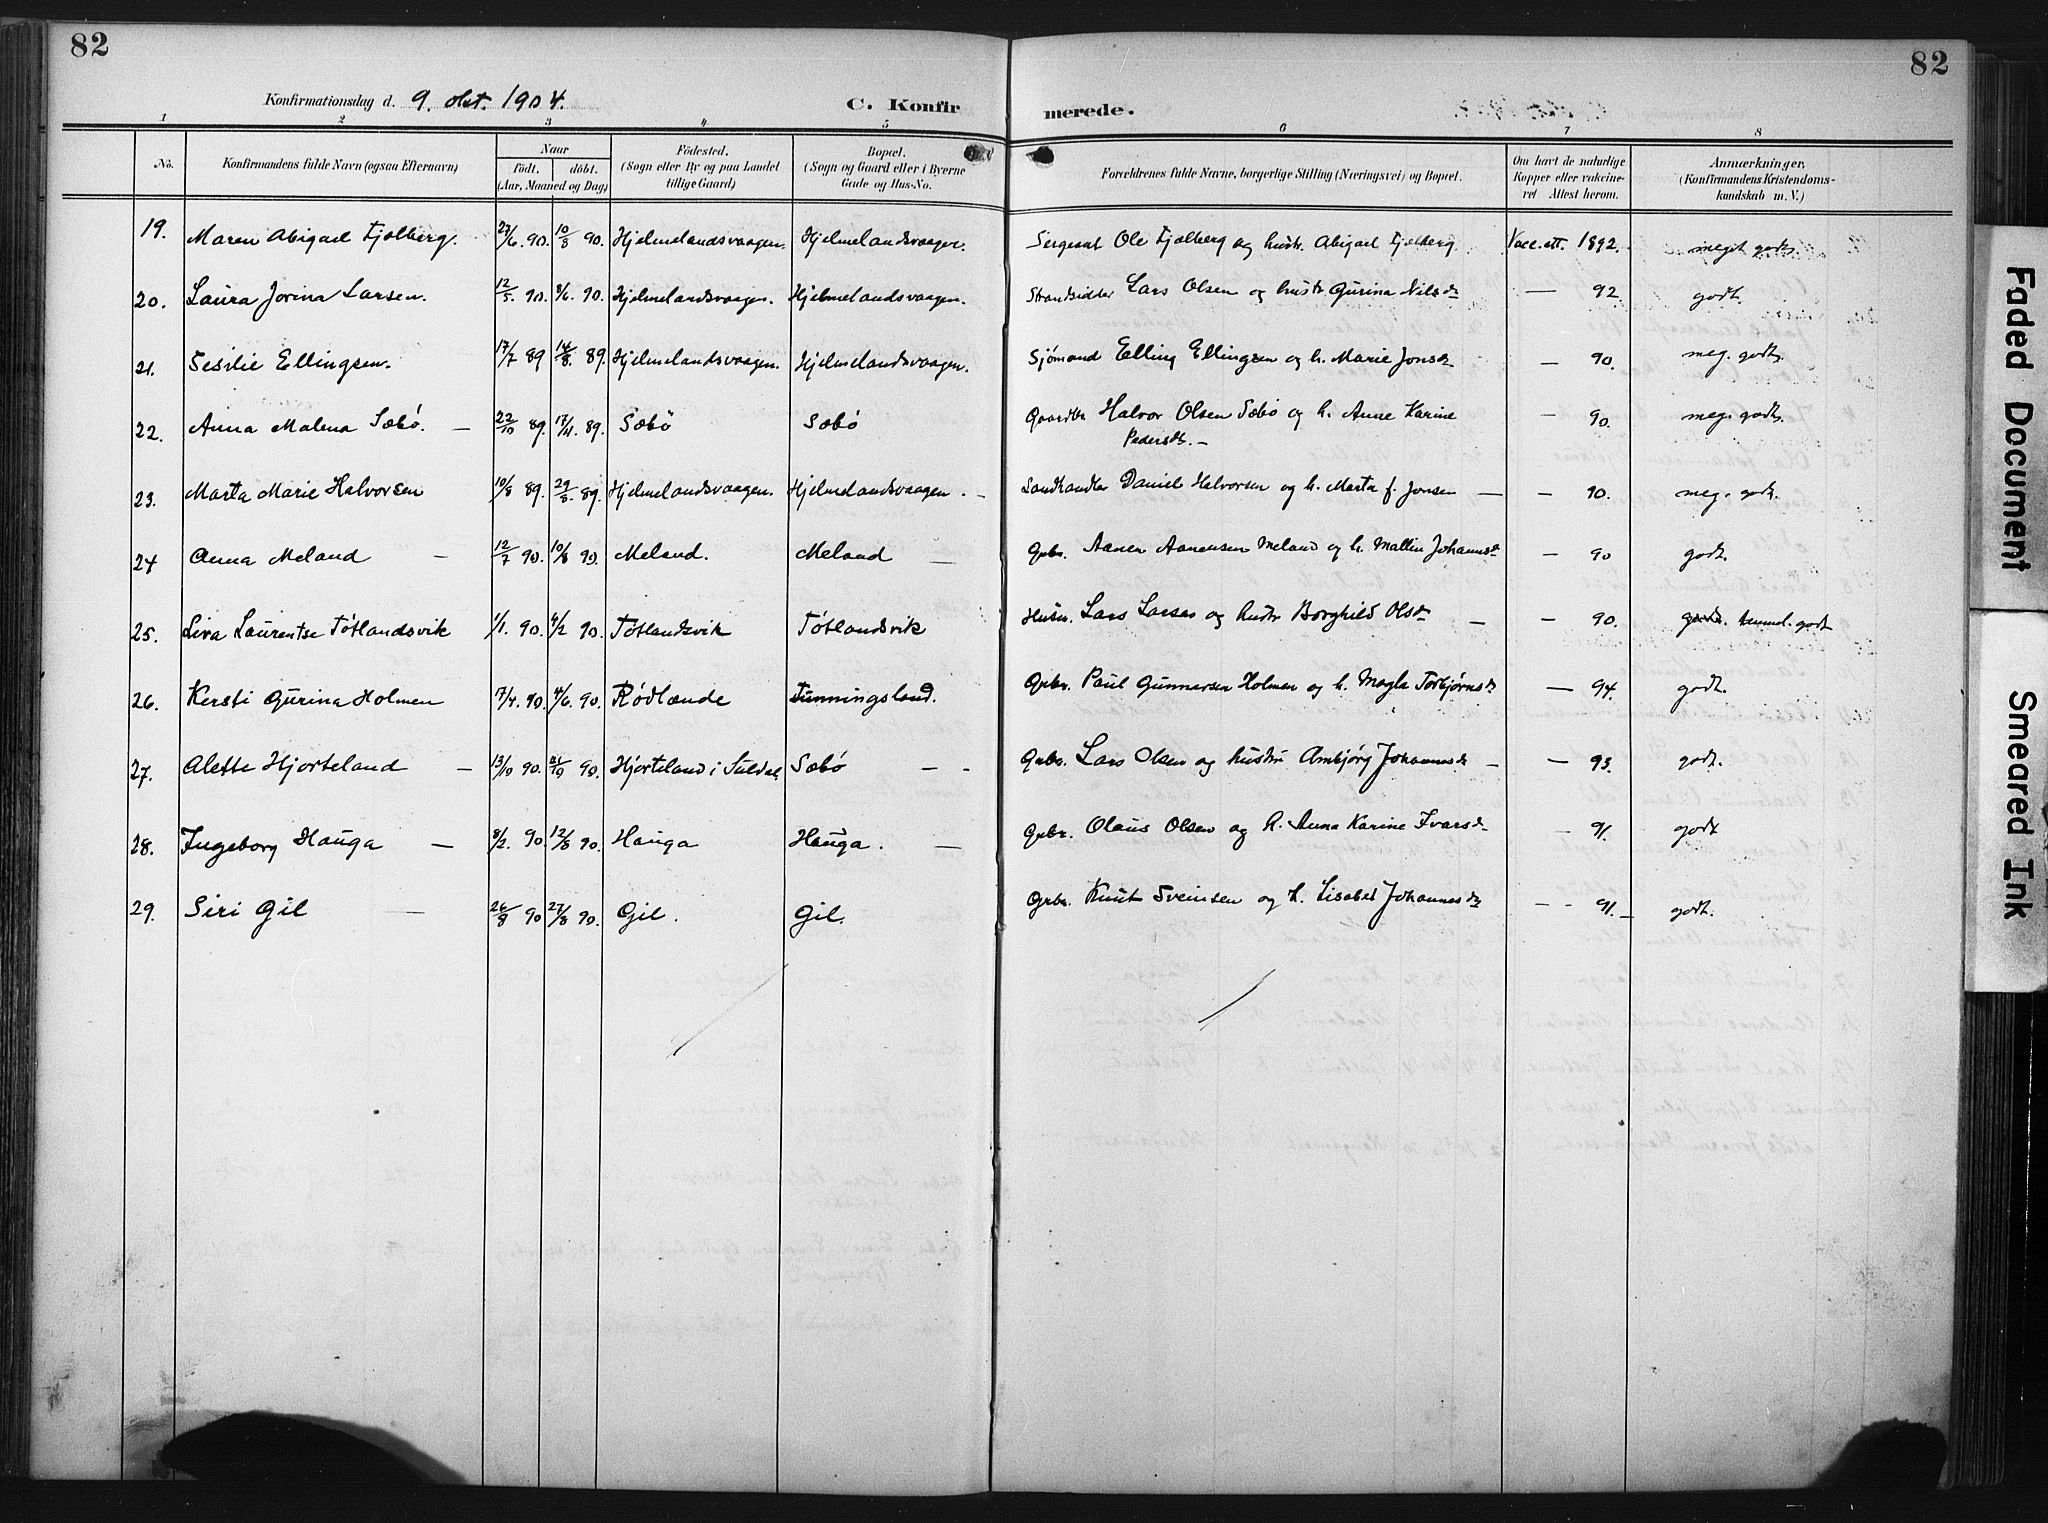 82
82
Konfirmationsdag d. 9. okt. 1904.
C. Konfir
merede.
1 2 3 4 5 6 7 8
No. Konfirmandens fulde Navn (ogsaa Efternavn) Naar født. døbt. (Aar, Maaned og Dag) Fødested. (Sogn eller By og paa Landet tillige Gaard) Bopæl. (Sogn og Gaard eller i Byerne Gade og Hus-No. Forældrenes fulde Navne, borgerlige Stilling (Næringsvei) og Bopæl. Om havt de naturlige Kopper eller vakcineret Attest herom. Anmærkninger, (Konfirmandens Kristendomskundskab m. V.)
19. Maren Abigael Fjælberg. 27/6. 90. 10/8 90. Hjelmelandsvaagen. Hjelmelandsvaagen. Sergeant Ole Fjælberg og hustr. Abigael Fjelberg Vacc. att. 1892. meget godt.
20. Laura Jorina Larsen. 12/5. 90. 8/6. 90. Hjelmelandsvaagen. Hjelmelandsvaagen. Strandsidder Lars Olsen og hustr Gurina Nilsdr — 92. godt.
21. Sesilie Ellingsen. 17/7 89 14/8. 89. Hjelmelandsvaagen. Hjelmelandsvaagen. Sjömand Elling Ellingsen og h. Marie Jonsdr — 90. meg. godt.
22. Anna Malena Sæbö. — 22/10 89. 17/11. 89. Sæbö Sæbó Gaardbr Halvor Olsen Sæbo og h. Anne Karine — 90. meg. godt.
Pedersdr. —
23. Marta Marie Halvorsen 10/8 89. 29/8. 89. Hjelmelandsvaagen. Hjelmelandsvaagen. — Landhandler Daniel Halvorsen og h. Marta f. Jonsen — — 90. meg. godt.
24 Anna Meland — 12/7 90. 10/8 90. Meland. Meland — Grbr. Aanen Aanensen Meland og h. Mallin Johannsdr — 90 godt.
25. Liva Laurentse Tötlandsvik 1/1. 90. 4/2 90. Tötlandsvik Tötlandsvik Husm. Lars Larsen og hustr Borghild Olsdr — — 90. godt. temmel. godt
26. Kersti Gurina Holmen 7/4. 90. 4/6. 90. Rödlænde Funningsland. Grbr. Paul Gunnarsen Holmen og h. Magla Torbjørnsdr — 94. godt.
27. Alette Hjorteland — 13/10 90. 90. Hjorteland i Suldal Sæbö — - Grbr. Lars Olsen og hustru Ambjörg Johannesdr — — 93. godt.
28. Ingeborg Hauga — 8/2. 90. 12/8 90. Hauga Hauga. — Grbr. Olaus Olsen og h. Anna Karine Ivarsdr — 91. godt
29. Siri Gil — 26/8 90 27/8 90. Gil. Gil. Grbr. Knut Sveinsen og h. Lisabet Johannesdr - - 91. — godt.
Faded Document
Smeared Ink